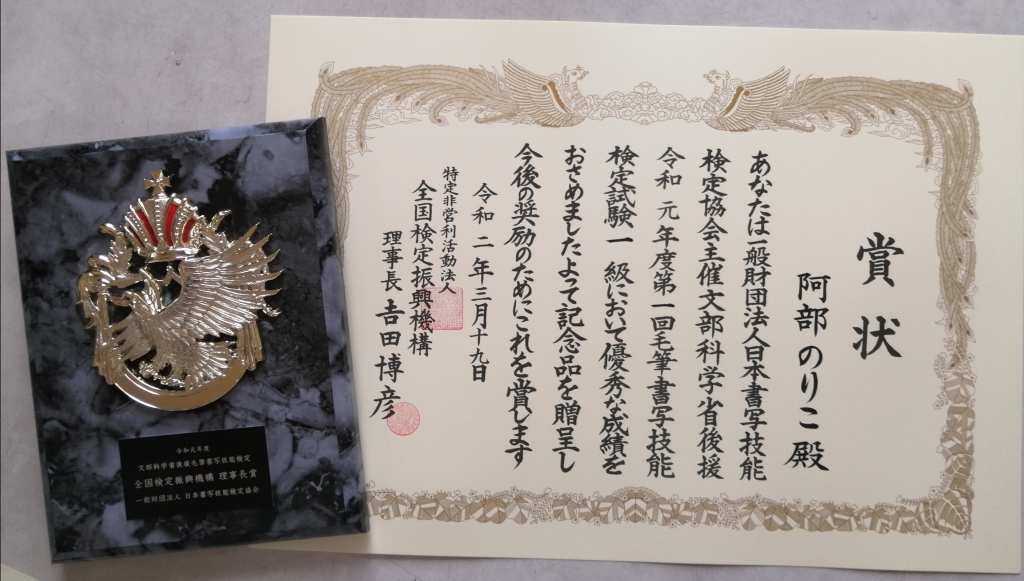 賞状
阿部のりこ 殿
あなたは一般財団法人日本書写技能
検定協会主催文部科学省後援
令和 元 年度第一回毛筆書写技能
検定試験 一 級において優秀な成績を
おさめましたよって記念品を贈呈し
今後の奨励のためにこれを賞します
令和 二 年 三月 十九日
特定非営利活動法人
全国検定振興機構
理事長 𠮷田博彦
令和元年度
文部科学省後援毛筆書写技能検定
全国検定振興機構 理事長賞
一般財団法人 日本書写技能検定協会